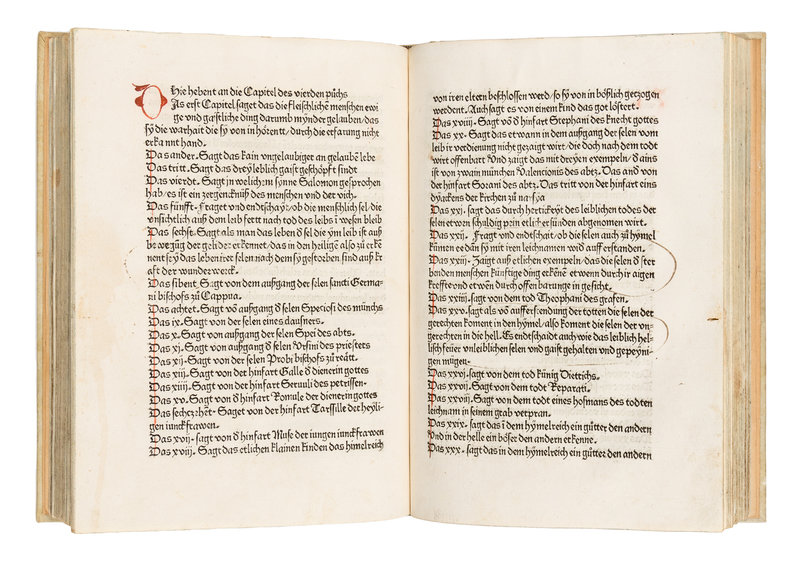 Hie hebent an die Capitel des vierden půchs
DAs erst Capitel saget das die fleischlichē menschen ewi
ge vnd gaistliche ding darumb mynder gelauben/das
sy die warhait die sy von in hözent/durch die erfarung nicht
erkannt hand.
Das ander. Sagt das kain vngelaubiger an gelaubē lebe
Das tritt. Sagt das drey leblich gaist geschöpft sindt
Das vierdt. Sagt in welichem synne Salomon gesprochen
hab/es ist ein zergencknuß des menschen vnd der vich.
Das fünfft. Fraget vnd entschayt/ob die menschlich sel/die
vnsichtlich auß dem leib fert nach tod des leibs in wesen bleib
Das sechst. Sagt als man das leben d sel die ym leib ist auß
be wegūg der gelider erkennet/das in den heiligē also zu erkē
nent sey das leben irer selen nach dem sy gestorben sind auß kr
aft der wunderwerck.
Das sibent. Sagt von dem außgang der selen sancti Germa
ni bischofs zů Cappua.
Das achtet. Sagt vō außgang d selen Speciosi des münchs
Das ix. Sagt von der selen eines clausners.
Das x. Sagt von außgang der selen Spei des abts.
Das xi. Sagt von außgang d selen Vrsini des priesters
Das xij. Sagt von der selen Probi bischofs zů reātt.
Das xiij. Sagt von der hinfart Galle d dienerin gottes
Das xiiij. Sagt von der hinfart Seruuli des petrissen.
Das xv. Sagt von d hinfart Romule der dienerin gottes
Das sechzehēt. Saget von der hinfart Tarssille der heyli-
gen iunckfrawen.
Das xvij. sagt von d hinfart Muse der iungen iunckfrawen
Das xviij. Sagt das etlichen klainen kinden das himelreich
von iren eltern beschlossen werd/so sy von in bößlich gezogen
werdent. Auch sagt es von einem kind das got löstert.
Das xviiij. Sagt vō d hinfart Stephani des knecht gottes
Das xx. Sagt das etwann in dem außgang der selen vom
leib ir verdienung nicht gezaigt wirt/die doch nach dem todt
wirt offenbart Vnd zaigt das mit dreyen exempeln/d ains
ist von zwam münchn Valencionis des abtz. Das and von
der hinfart Sorani des abtz. Das tritt von der hinfart eins
dyackens der kirchen zů
Das xxj. sagt das durch hertikeyt des leiblichen todes der
selen etwen schuldig pein etlicher sünden abgenomen wirt.
Das xxij. Fragt vnd entschait/ob die selen auch zů hymel
kümen ee dan sy mit iren leichnamen wid auff erstanden.
Das xxiij. Zaigt auß etlichen exempeln/das die selen d ster
benden menschen künftige ding erkēnē etwenn durch ir aigen
krefft vnd etwen durch offenbarunge in gesicht.
Das xxiiij. sagt von dem tod Theophani des grafen.
Das xxv. sagt als vō aufferstendung der totten die selen der
gerechten koment in den hymel/also koment die selen der vn-
gerechten in die hell. Es entschaidt auch wie das leiblich hel-
lisch feüer vnleiblichen selen vnd gaist gehalten vnd gepeyni-
gen mügen.
Das xxvj. sagt von dem tod künig Diettrichs.
Das xxvij. Sagt von dem todt Reparati.
Das xxviij. Sagt von dem todt eines hofmans des todten
leichnam in seinem grab verpran.
Das xxix. sagt das ī dem hymelreich ein gůtter den andern
vnd in der helle ein böser den andern erkenne.
Das xxx. sagt das in dem hymelreich ein gůtter den andern